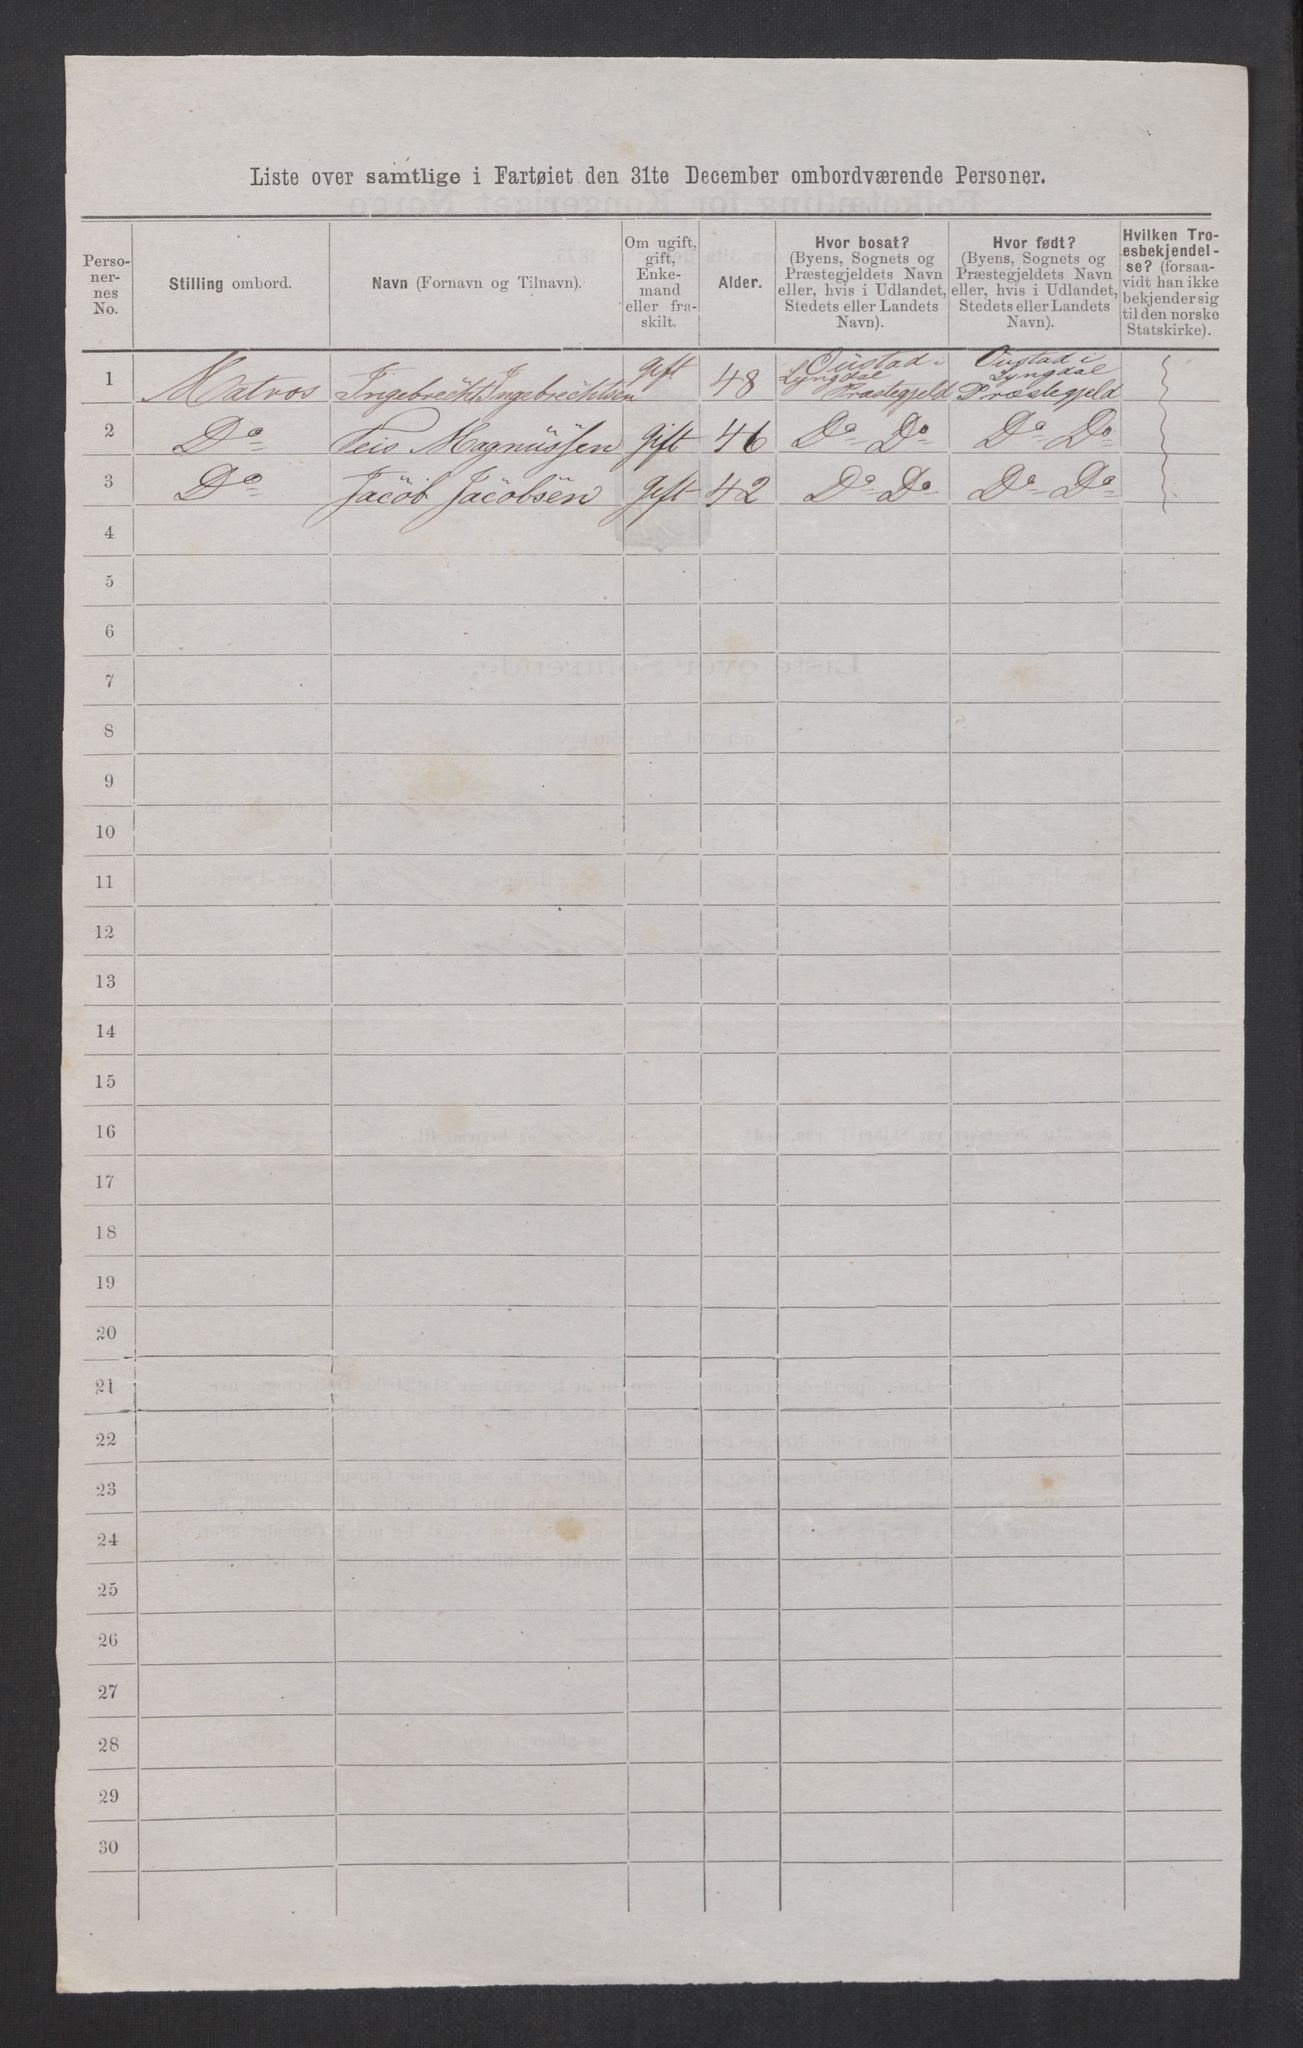 Liste over samtlige i Fartøiet den 31te December ombordværende Personer.
Perso-
ner-
nes
No.
Stilling ombord.
Navn (Fornavn og Tilnavn).
Om ugift,
gift,
Enke-
mand
eller fra-
skilt.
Alder.
Hvor bosat?
(Byens, Sognets og
Præstegjeldets Navn
eller, hvis i Udlandet,
Stedets eller Landets
Navn).
Hvor født?
(Byens, Sognets og
Præstegjeldets Navn
eller, hvis i Udlandet,
Stedets eller Landets
Navn).
Hvilken Tro-
esbekjendel-
se? (forsaa-
vidt han ikke
bekjender sig
til den norske
Statskirke).
1 Matros Ingebreckt Ingebrechtsen gift 48
Oustad i
Lyngdal
Præstegjeld
Oustad i
Lyngdal
Præstegjeld
2 Do Teis Magnussen gift 46 Do Do Do Do
3 Do Jacob Jacobsen gift 42 Do Do Do Do
4
5
6
7
8
9
10
11
12
13
14
15
16
17
18
19
20
21
22
23
24
25
26
27
28
29
30